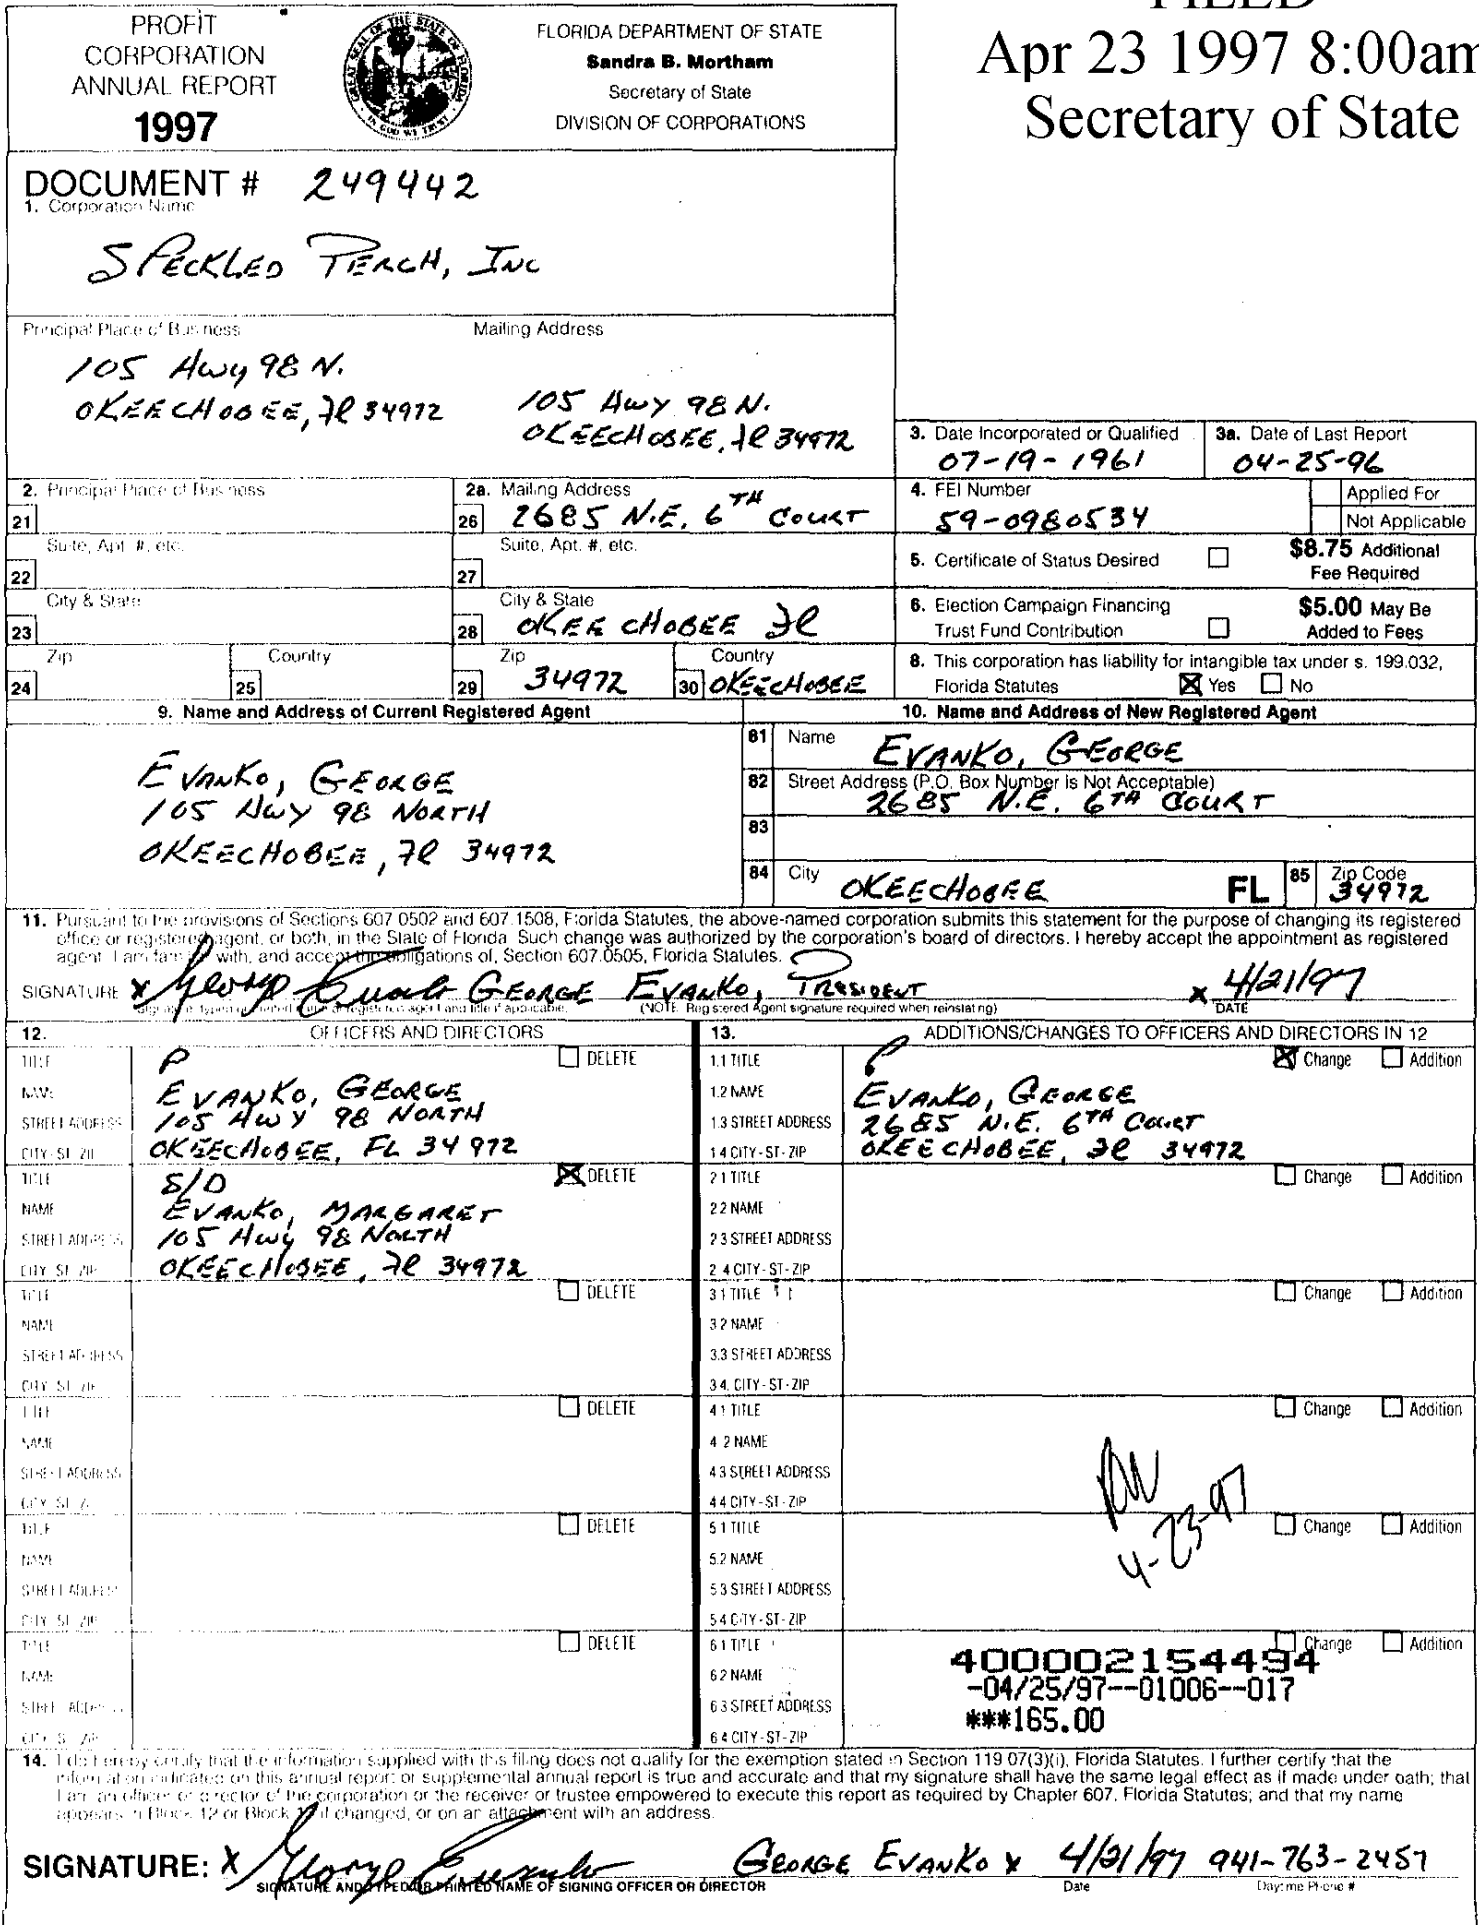 PROFIT
CORPORATION
ANNUAL REPORT
1997
FLORIDA DEPARTMENT OF STATE
Sandra B. Mortham
Secretary of State
DIVISION OF CORPORATIONS
FILED
Apr 23 1997 8:00am
Secretary of State
DOCUMENT # 249442
1. Corporation Name
SPECKLED PERCH, INC
Principal Place of Business
105 Hwy 98 N.
OKEECHOBEE, Fl 34972
Mailing Address
105 Hwy 98 N.
OKEECHOBEE, Fl 34972
3. Date Incorporated or Qualified
07-19-1961
3a. Date of Last Report
04-25-96
2. Principal Place of Business
21
2a. Mailing Address
26 2685 N.E. 6TH COURT
4. FEI Number
59-0980534
Applied For
Not Applicable
Suite, Apt. #, etc.
22
Suite, Apt. #, etc.
27
5. Certificate of Status Desired
$8.75 Additional
Fee Required
City & State
23
City & State
28 OKEECHOBEE Fl
6. Election Campaign Financing
Trust Fund Contribution
$5.00 May Be
Added to Fees
Zip
24
Country
25
Zip
29 34972
Country
30 OKEECHOBEE
8. This corporation has liability for intangible tax under s. 199.032,
Florida Statutes Yes No
9. Name and Address of Current Registered Agent
EVANKO, GEORGE
105 HWY 98 NORTH
OKEECHOBEE, Fl 34972
10. Name and Address of New Registered Agent
81 Name EVANKO, GEORGE
82 Street Address (P.O. Box Number is Not Acceptable)
2685 N.E. 6TH COURT
83
84 City OKEECHOBEE FL 85 Zip Code 34972
11. Pursuant to the provisions of Sections 607.0502 and 607.1508, Florida Statutes, the above-named corporation submits this statement for the purpose of changing its registered
office or registered agent, or both, in the State of Florida. Such change was authorized by the corporation's board of directors. I hereby accept the appointment as registered
agent. I am familiar with, and accept the obligations of, Section 607.0505, Florida Statutes.
SIGNATURE X George Evanko GEORGE EVANKO, PRESIDENT X 4/21/97
Signature, typed or printed name of registered agent and title if applicable. (NOTE: Registered Agent signature required when reinstating) DATE
12. OFFICERS AND DIRECTORS
13. ADDITIONS/CHANGES TO OFFICERS AND DIRECTORS IN 12
TITLE P DELETE
NAME EVANKO, GEORGE
STREET ADDRESS 105 HWY 98 NORTH
CITY-ST-ZIP OKEECHOBEE, FL 34972
1.1 TITLE P Change Addition
1.2 NAME EVANKO, GEORGE
1.3 STREET ADDRESS 2685 N.E. 6TH COURT
1.4 CITY-ST-ZIP OKEECHOBEE, Fl 34972
TITLE S/D DELETE
NAME EVANKO, MARGARET
STREET ADDRESS 105 Hwy 98 NORTH
CITY-ST-ZIP OKEECHOBEE, Fl 34972
2.1 TITLE Change Addition
2.2 NAME
2.3 STREET ADDRESS
2.4 CITY-ST-ZIP
TITLE DELETE
NAME
STREET ADDRESS
CITY-ST-ZIP
3.1 TITLE Change Addition
3.2 NAME
3.3 STREET ADDRESS
3.4. CITY-ST-ZIP
TITLE DELETE
NAME
STREET ADDRESS
CITY-ST-ZIP
4.1 TITLE Change Addition
4.2 NAME
4.3 STREET ADDRESS
4.4 CITY-ST-ZIP
4-23-97
TITLE DELETE
NAME
STREET ADDRESS
CITY-ST-ZIP
5.1 TITLE Change Addition
5.2 NAME
5.3 STREET ADDRESS
5.4 CITY-ST-ZIP
TITLE DELETE
NAME
STREET ADDRESS
CITY-ST-ZIP
6.1 TITLE Change Addition
6.2 NAME
6.3 STREET ADDRESS
6.4 CITY-ST-ZIP
400002154494
-04/25/97--01006--017
***165.00
14. I do hereby certify that the information supplied with this filing does not qualify for the exemption stated in Section 119.07(3)(i), Florida Statutes. I further certify that the
information indicated on this annual report or supplemental annual report is true and accurate and that my signature shall have the same legal effect as if made under oath; that
I am an officer or director of the corporation or the receiver or trustee empowered to execute this report as required by Chapter 607, Florida Statutes; and that my name
appears in Block 12 or Block 13 if changed, or on an attachment with an address.
SIGNATURE: X George Evanko GEORGE EVANKO X 4/21/97 941-763-2457
SIGNATURE AND TYPED OR PRINTED NAME OF SIGNING OFFICER OR DIRECTOR Date Daytime Phone #